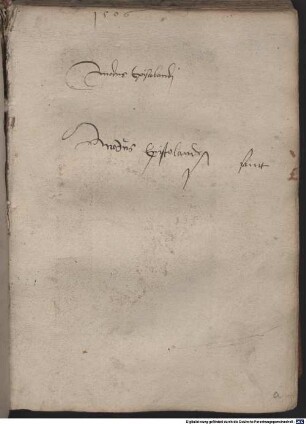 1506
Modus Epistolandi
Modus Epistolandi
a
Digitalisierung gefördert durch die Deutsche Forschungsgemeinschaft